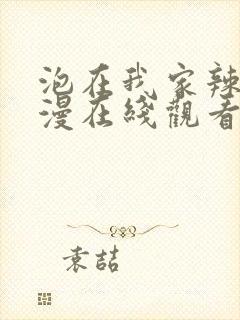 泡在我家辣
漫在綫觀看
袁喆